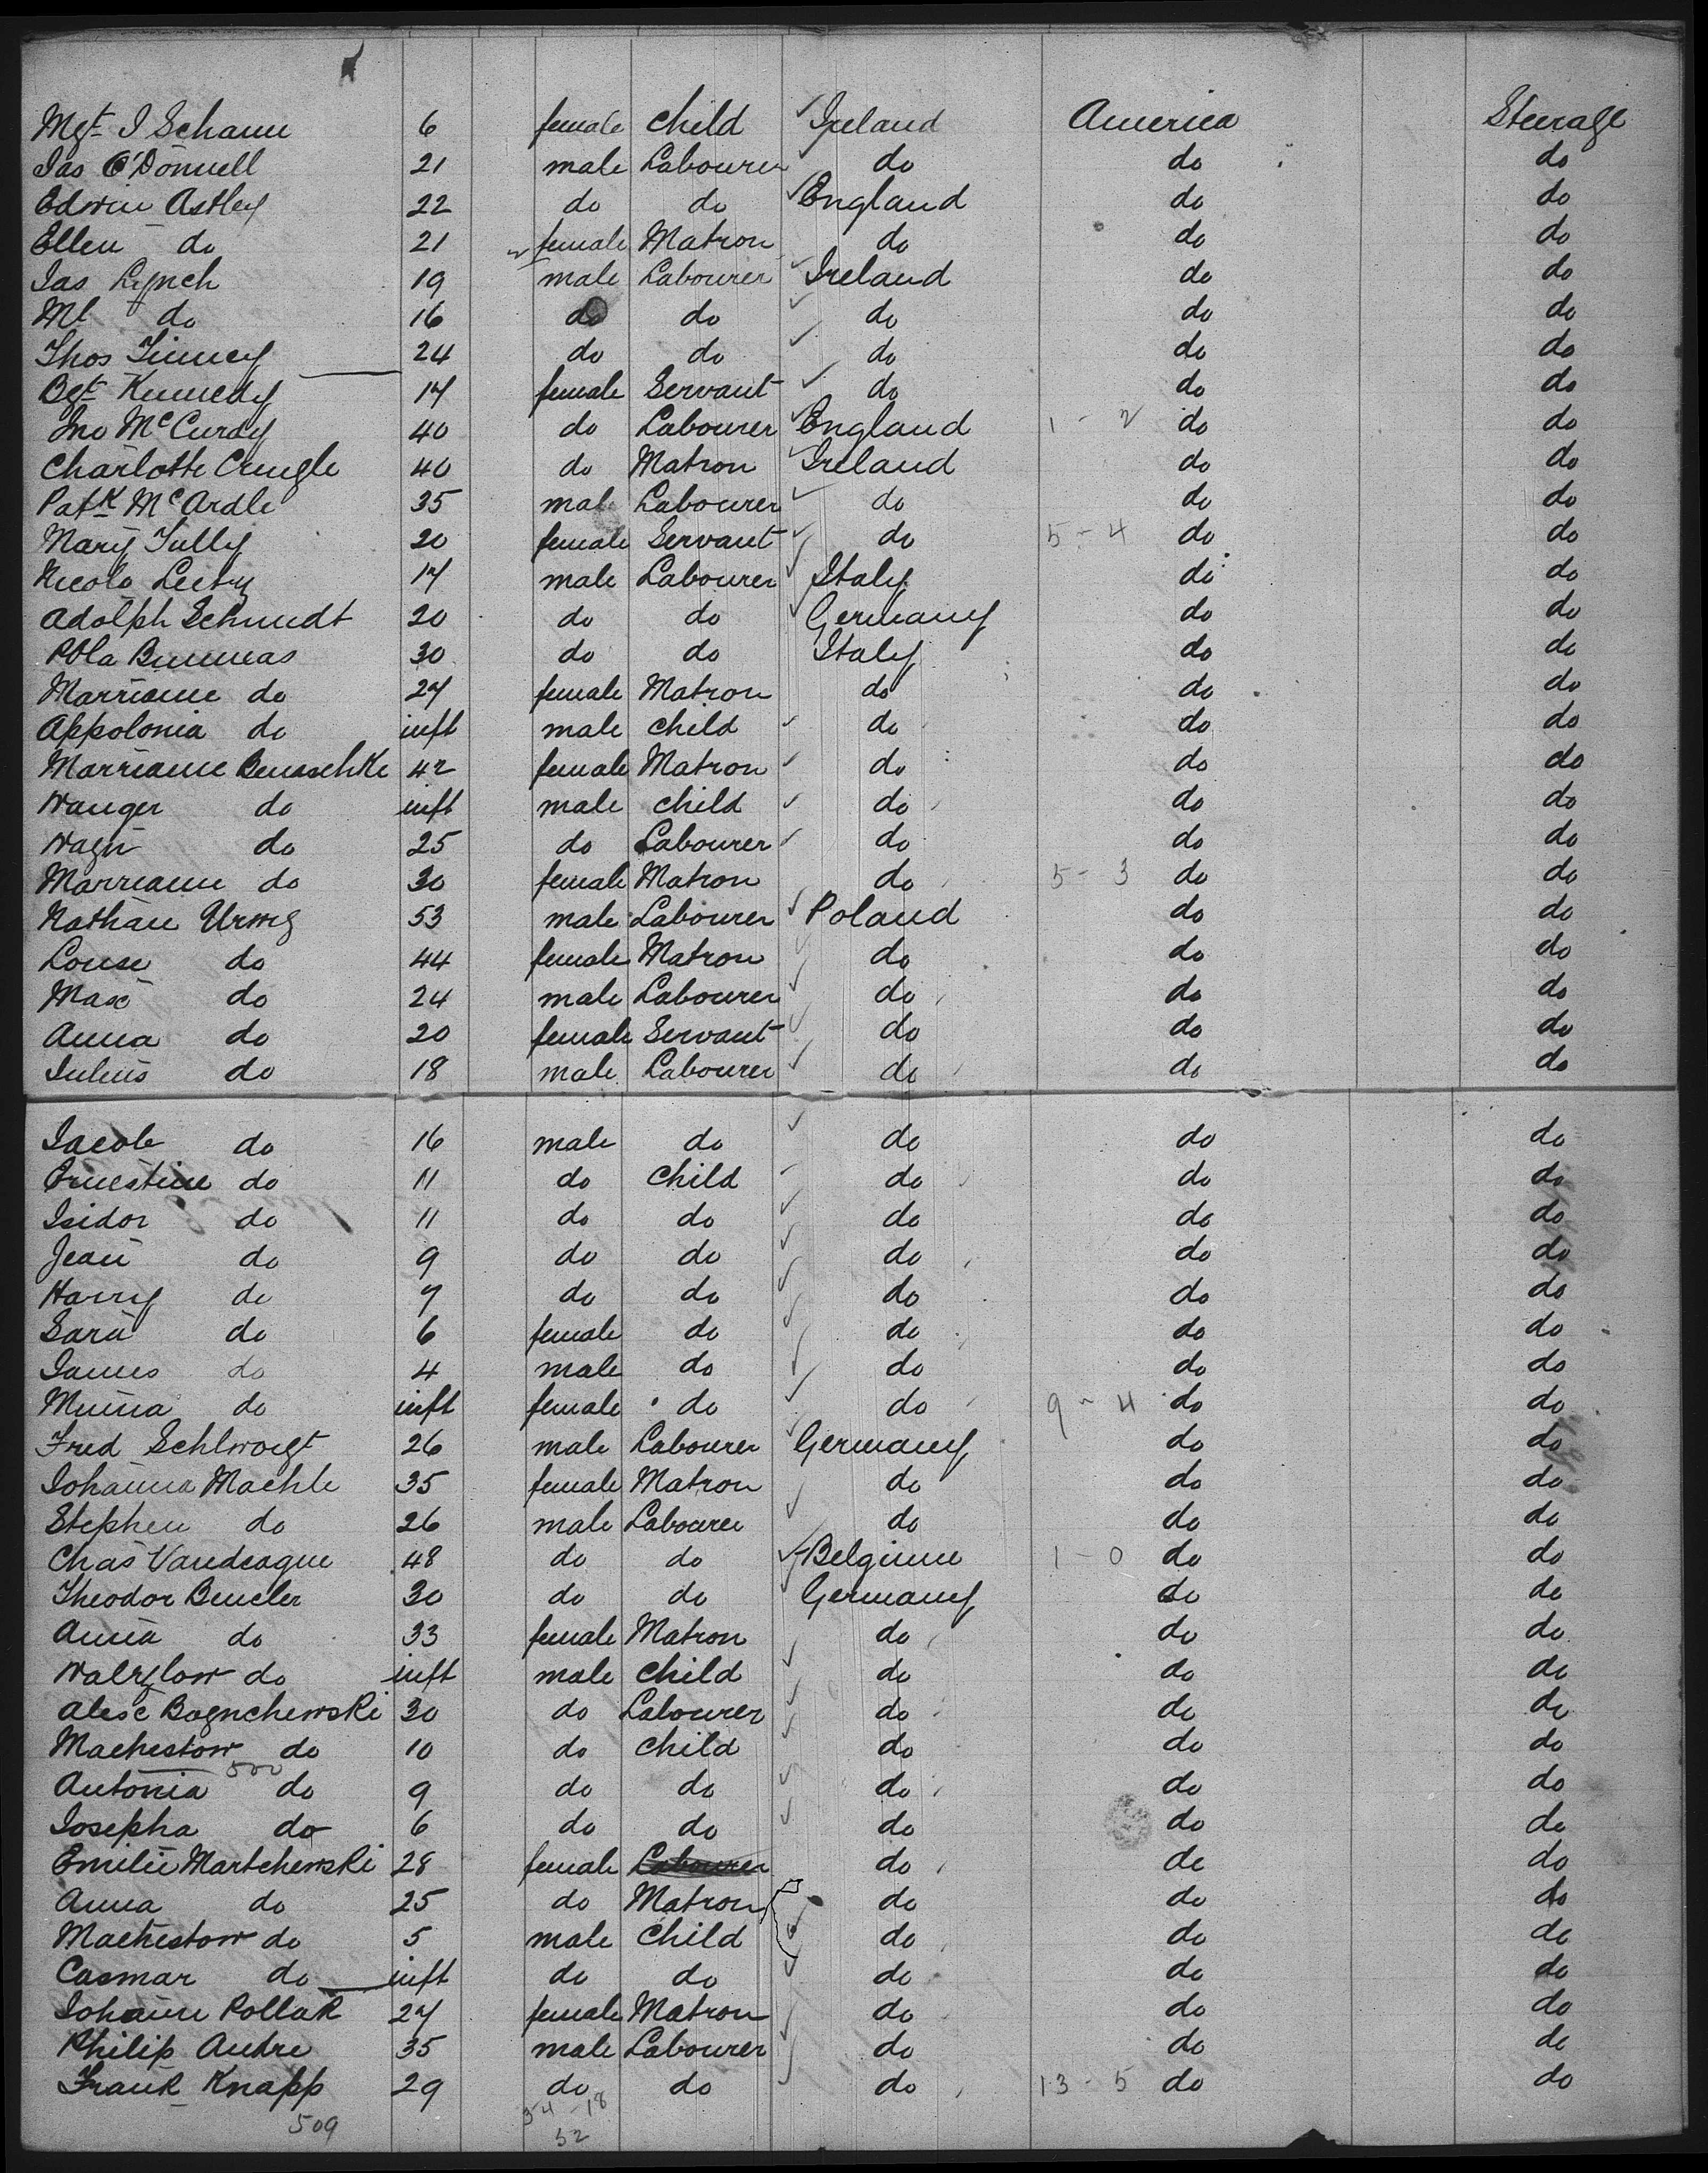 Mgt I Schann 6 female child Ireland America Steerage
Jas O'Donnell 21 male Labourer do do do
Edwin Astley 22 do do England do do
Ellen do 21 female Matron do do do
Jas Lynch 19 male Labourer Ireland do do
Ml do 16 do do do do do
Thos Finney 24 do do do do do
Bgt Kennedy 17 female Servant do do do
Jno McCurdy 40 do Labourer England 1 - 2 do do
Charlotte Cringle 40 do Matron Ireland do do
Patk McArdle 35 male Labourer do do do
Mary Tully 20 female Servant do 5 - 4 do do
Nicola 17 male Labourer Italy do do
Adolph Schmidt 20 do do Germany do do
30 do do Italy do do
Marrianne do 27 female Matron do do do
Appolonia do inft male child do do do
Marrianne Benaschke 42 female Matron do do do
Wanger do inft male child do do do
do 25 do Labourer do do do
Marrianne do 30 female Matron do 5 - 3 do do
Nathan 53 male Labourer Poland do do
Louise do 44 female Matron do do do
Max do 24 male Labourer do do do
Anna do 20 female Servant do do do
Julius do 18 male Labourer do do do
Jacob do 16 male do do do do
Ernestine do 11 do child do do do
Isidor do 11 do do do do do
Jean do 9 do do do do do
Harry do 7 do do do do do
Sara do 6 female do do do do
James do 4 male do do do do
Minna do inft female do do 9 - 4 do do
Fred 26 male Labourer Germany do do
Johanna Maehle 35 female Matron do do do
Stephen do 26 male Labourer do do do
Chas Vandeague 48 do do Belgium 1 - 0 do do
Theodor Bencler 30 do do Germany do do
Anna do 33 female Matron do do do
do inft male child do do do
30 do Labourer do do do
Machestow do 10 do child do do do
500
Antonia do 9 do do do do do
Josepha do 6 do do do do do
Emilie Martchewski 28 female Labourer do do do
Anna do 25 do Matron do do do
Machestow do 5 male child do do do
Casmar do inft do do do do do
Johann Pollak 27 female Matron do do do
Philip Andre 35 male Labourer do do do
Frank Knapp 29 do do do 13 - 5 do do
509 34 - 18
52